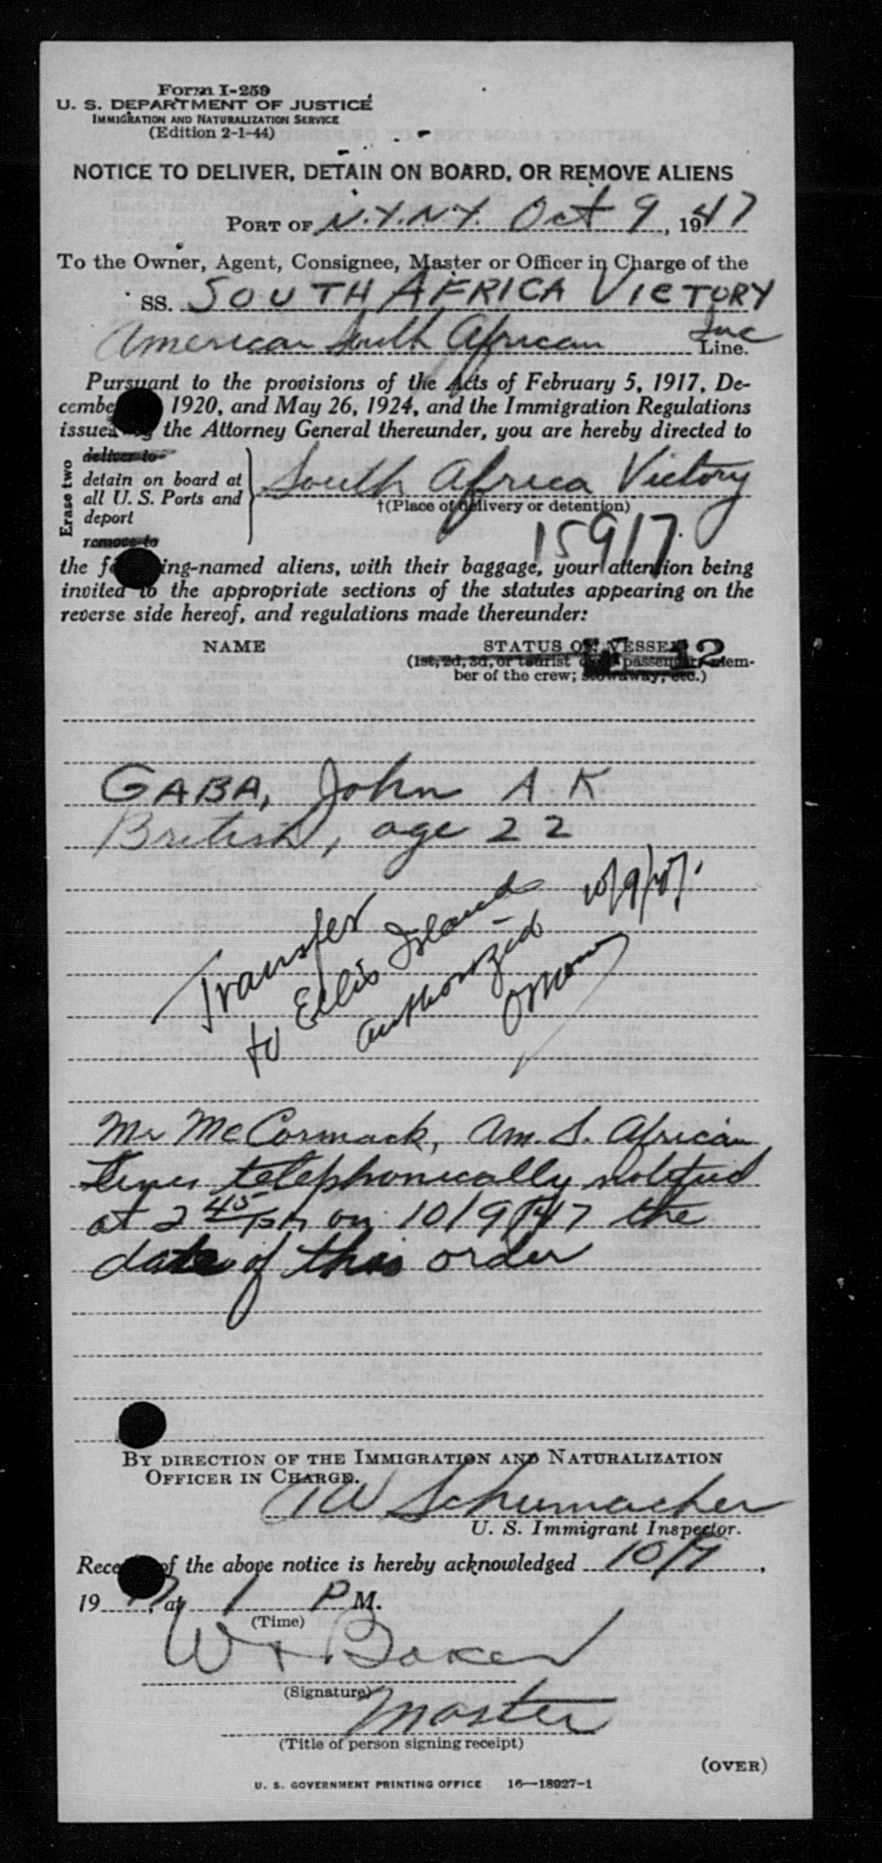 Form I-259
U. S. DEPARTMENT OF JUSTICE
IMMIGRATION AND NATURALIZATION SERVICE
(Edition 2-1-44)
NOTICE TO DELIVER, DETAIN ON BOARD, OR REMOVE ALIENS
PORT OF N.Y.N.Y. Oct 9, 1947
To the Owner, Agent, Consignee, Master or Officer in Charge of the
SS. SOUTH AFRICA VICTORY
American South African Inc Line.
Pursuant to the provisions of the Acts of February 5, 1917, De-
cembe 1920, and May 26, 1924, and the Immigration Regulations
issued by the Attorney General thereunder, you are hereby directed to
Erase two
deliver to
detain on board at
all U. S. Ports and
deport
remove to
South Africa Victory
†(Place of delivery or detention)
15917
the f ing-named aliens, with their baggage, your attention being
invited to the appropriate sections of the statutes appearing on the
reverse side hereof, and regulations made thereunder:
NAME STATUS ON VESSEL 12
(1st, 2d, 3d, or tourist passenger, mem-
ber of the crew; stowaway, etc.)
GABA, John A. K
British, age 22
Transfer
to Ellis Island
authorized
10/9/47.
Mr McCormack, Am. S. African
Lines telephonically notified
at 2 45 pm on 10/9/47 the
date of this order
BY DIRECTION OF THE IMMIGRATION AND NATURALIZATION
OFFICER IN CHARGE.
Schumacher
U. S. Immigrant Inspector.
Rece of the above notice is hereby acknowledged 10/9,
19 7, at 1 P M.
(Time)
W Baker
(Signature)
Master
(Title of person signing receipt)
(OVER)
U. S. GOVERNMENT PRINTING OFFICE 16—18927-1